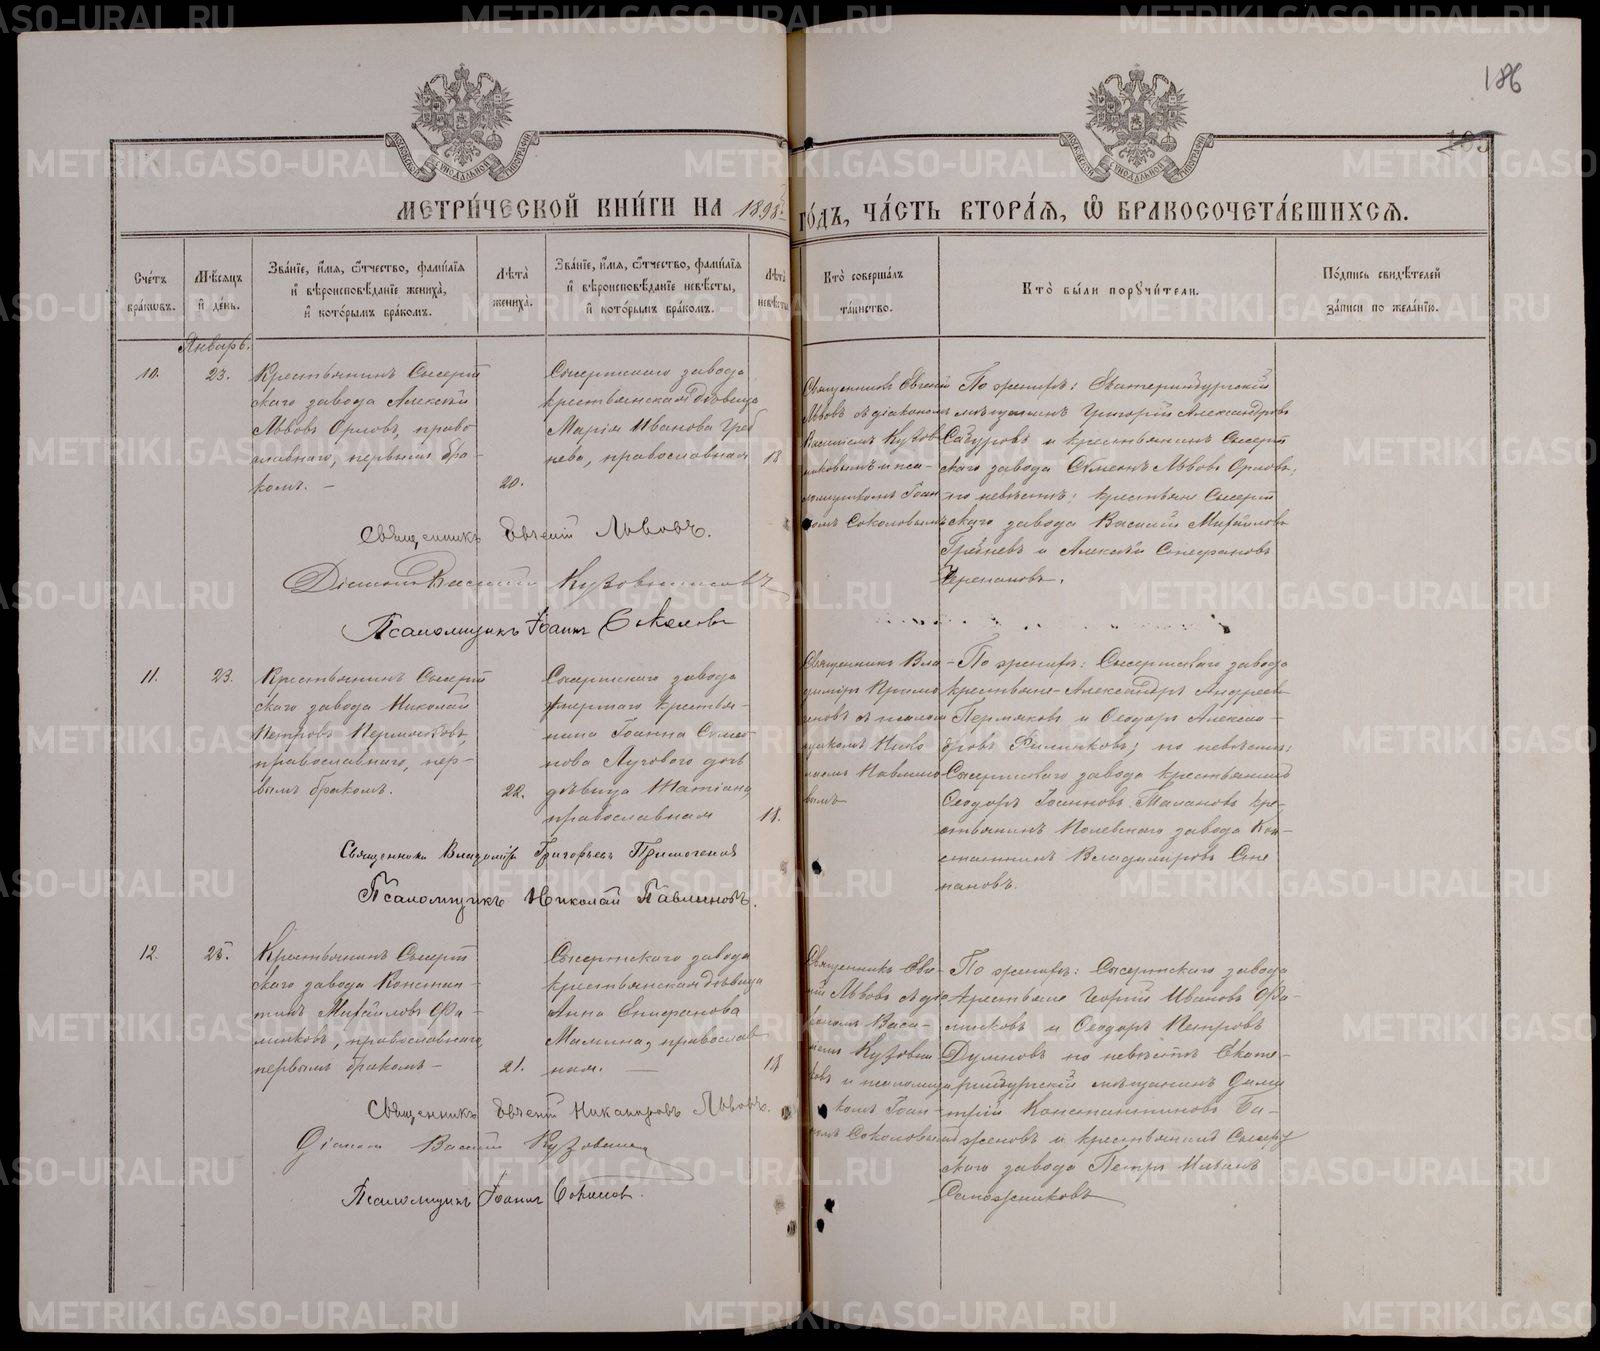 186
МОСКОВСКОЙ СѴНОДАЛЬНОЙ ТИПОГРАФІИ
МОСКОВСКОЙ СѴНОДАЛЬНОЙ ТИПОГРАФІИ
МЕТРИ́ЧЕСКОЙ КНИ́ГИ НА 1898 ГО́ДЪ, ЧА́СТЬ ВТОРА́Я, Ѡ БРАКОСОЧЕТА́ВШИХСЯ.
Сче́тъ бра́ковъ.
Мѣ́сяцъ и҆ де́нь.
Зва́нїе, и҆́мя, ѻ҆́тчество, фами́лїя и҆ вѣроисповѣ́данїе жениха̀, и҆ кото́рымъ бра́комъ.
Лѣта̀ жениха̀.
Зва́нїе, и҆́мя, ѻ҆́тчество, фами́лїя и҆ вѣроисповѣ́данїе невѣ́сты, и҆ кото́рымъ бра́комъ.
Лѣта̀ невѣ́сты
Кто̀ соверша́лъ та́инство.
Кто̀ бы́ли порꙋчи́тели.
По́дпись свидѣ́телей за́писи по жела́нїю.
Январь.
10.
23.
Крестьянинъ Сысерт
скаго завода Алексѣй
Львовъ Орловъ, право
славнаго, первымъ бра-
комъ. –
20.
Сысертскаго завода
крестьянская дѣвица
Марія Иванова Греб
нева, православная
18
Священникъ Евгеній
Львовъ съ діакономъ
Василіемъ Кузов
никовымъ и пса-
ломщикомъ Іоан-
номъ Соколовымъ
По женихѣ: Екатеринбургскій
мѣщанинъ Григорій Александровъ
и крестьянинъ Сысерт
скаго завода Семенъ Львовъ Орловъ;
по невѣстѣ: крестьяне Сысерт
скаго завода Василій Михайловъ
Гребневъ и Алексѣй Стефановъ
Черепановъ.
Священникъ Евгеній Львовъ.
Діаконъ Василій Кузовниковъ
Псаломщикъ Іоаннъ Соколовъ
11.
23.
Крестьянинъ Сысерт
скаго завода Николай
Петровъ Пермяковъ,
православнаго, пер-
вымъ бракомъ.
22.
Сысертскаго завода
умершаго крестья-
нина Іоанна Семе
нова Луговаго дочь
дѣвица Татіана,
православная
18.
Священникъ Вла
диміръ Примо
геновъ съ псалом
щикомъ Нико
лаемъ Павлино
вымъ
– По женихѣ: Сысертскаго завода
крестьяне – Александръ Андреевъ
Пермяковъ и Ѳеодоръ Алексан-
дровъ; по невѣстѣ:
Сысертскаго завода крестьянинъ
Ѳеодоръ Іоанновъ и кре-
стьянинъ Полевскаго завода Кон-
стантинъ Владиміровъ Сте
пановъ.
Священникъ Владиміръ Григорьевъ Примогеновъ
Псаломщикъ Николай Павлиновъ.
12.
25.
Крестьянинъ Сысерт
скаго завода Констан-
тинъ Михайловъ Фа-
мнковъ, православнаго,
первымъ бракомъ –
21.
Сысертскаго завода
крестьянская дѣвица
Анна Стефанова
Мамина, православ
ная. –
18
Священникъ Евге-
ній Львовъ съ діа
кономъ Васи-
ліемъ Кузовни
ковъ и псаломщи
комъ Іоан-
номъ Соколовымъ
По женихѣ: Сысертскаго завода
крестьяне Георгій Ивановъ
и Ѳеодоръ Петровъ
по невѣстѣ Екате-
ринбургскій мѣщанинъ Дими
трій Константиновъ Ба-
женовъ и крестьянинъ Сысерт
скаго завода Петръ
Сапожниковъ
Священникъ Евгеній Никаноровъ Львовъ.
Діаконъ Василій
Псаломщикъ Іоаннъ Соколовъ.
METRIKI.GASO-URAL.RU